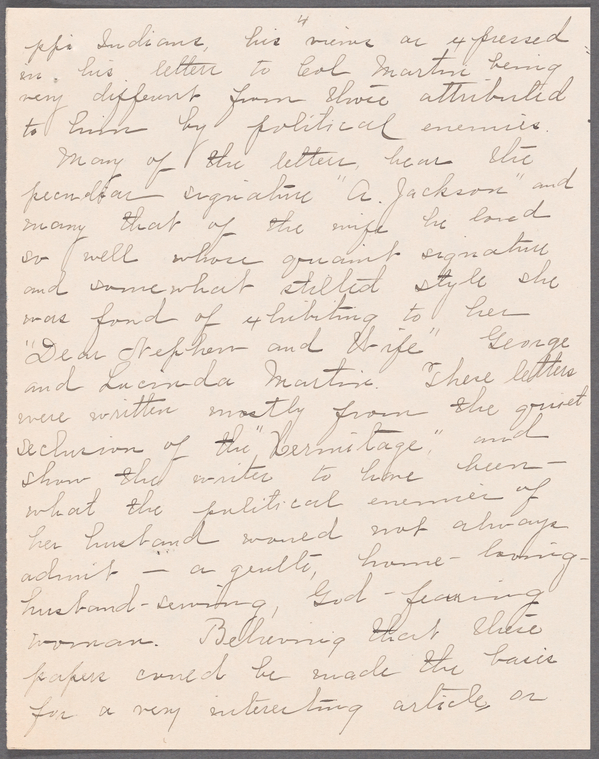 4
ppi Indians, his views as expressed
in his letters to Col Martin being
very different from those attributed
to him by political enemies.
Many of the letters, bear the
peculiar signature "A. Jackson" and
many that of the wife he loved
so well whose quaint signature
and somewhat stilted style she
was fond of exhibiting to her
"Dear Nephew and Wife" George
and Lucinda Martin. These letters
were written mostly from the quiet
seclusion of the "Hermitage," and
show the writer to have been
what the political enemies of
her husband would not always
admit — a gentle, home-loving-
husband-serving, God-fearing
woman. Believing that these
papers could be made the basis
for a very interesting article, or